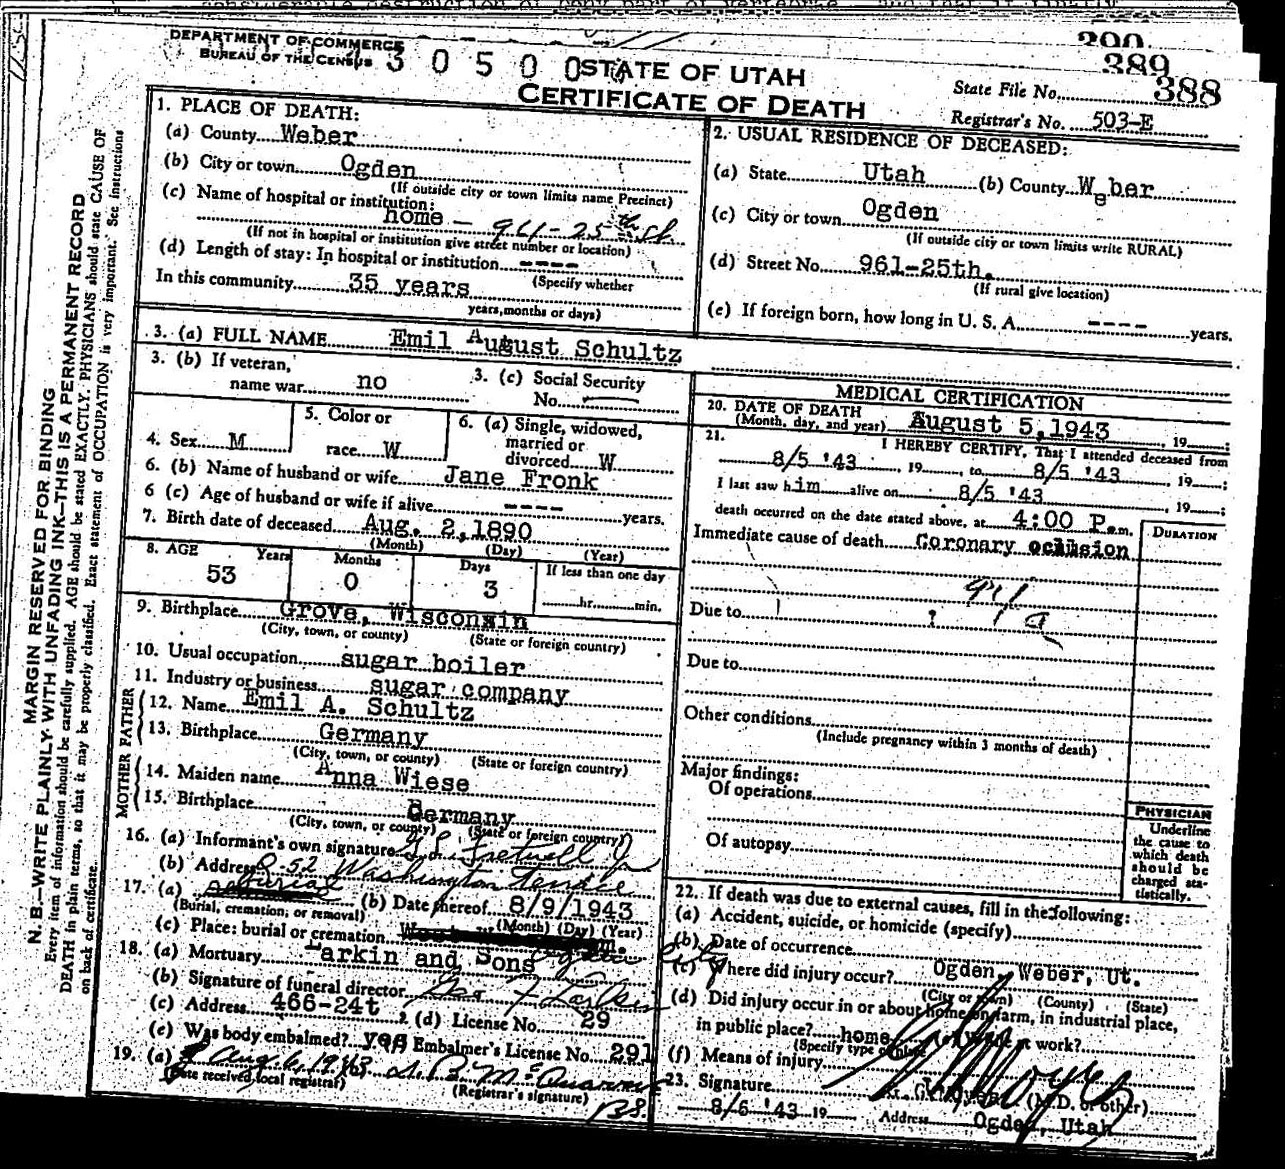 DEPARTMENT OF COMMERCE
BUREAU OF THE CENSUS
3 0 5 0 0
STATE OF UTAH
CERTIFICATE OF DEATH
390
389
State File No. 388
Registrar's No. 503-E
MARGIN RESERVED FOR BINDING
N. B.—WRITE PLAINLY, WITH UNFADING INK—THIS IS A PERMANENT RECORD
Every item of information should be carefully supplied. AGE should be stated EXACTLY. PHYSICIANS should state CAUSE OF
DEATH in plain terms, so that it may be properly classified. Exact statement of OCCUPATION is very important. See instructions
on back of certificate.
1. PLACE OF DEATH:
(a) County Weber
(b) City or town Ogden
(If outside city or town limits name Precinct)
(c) Name of hospital or institution:
home — 961-25th St.
(If not in hospital or institution give street number or location)
(d) Length of stay: In hospital or institution ----
(Specify whether
In this community 35 years
years, months or days)
2. USUAL RESIDENCE OF DECEASED:
(a) State Utah (b) County Weber
(c) City or town Ogden
(If outside city or town limits write RURAL)
(d) Street No. 961-25th.
(If rural give location)
(e) If foreign born, how long in U. S. A. ---- years.
3. (a) FULL NAME Emil August Schultz
3. (b) If veteran, name war no
3. (c) Social Security No.
4. Sex M
5. Color or race W
6. (a) Single, widowed, married or divorced W
6. (b) Name of husband or wife Jane Fronk
6 (c) Age of husband or wife if alive ---- years.
7. Birth date of deceased Aug. 2,1890
(Month) (Day) (Year)
8. AGE Years Months Days If less than one day
53 0 3 hr. min.
9. Birthplace Grove, Wisconsin
(City, town, or county) (State or foreign country)
10. Usual occupation sugar boiler
11. Industry or business sugar company
FATHER
12. Name Emil A. Schultz
13. Birthplace Germany
(City, town, or county) (State or foreign country)
MOTHER
14. Maiden name Anna Wiese
15. Birthplace Germany
(City, town, or county) (State or foreign country)
16. (a) Informant's own signature
(b) Address Q-52 Washington Terrace
17. (a) burial (b) Date thereof 8/9/1943
(Burial, cremation, or removal) (Month) (Day) (Year)
(c) Place: burial or cremation Ogden City
18. (a) Mortuary Larkin and Sons
(b) Signature of funeral director Geo F Larkin
(c) Address 466-24t (d) License No. 29
(e) Was body embalmed? yes Embalmer's License No. 291
19. (a) Aug. 6, 1943
(Date received local registrar) (Registrar's signature)
MEDICAL CERTIFICATION
20. DATE OF DEATH
(Month, day, and year) August 5,1943, 19
21. I HEREBY CERTIFY, That I attended deceased from
8/5 '43, 19, to 8/5 '43, 19;
I last saw him alive on 8/5 '43, 19;
death occurred on the date stated above, at 4:00 P.m.
DURATION
Immediate cause of death Coronary oclusion
94/a
Due to
Due to
Other conditions
(Include pregnancy within 3 months of death)
Major findings:
Of operations
Of autopsy
PHYSICIAN
Underline
the cause to
which death
should be
charged sta-
tistically.
22. If death was due to external causes, fill in the following:
(a) Accident, suicide, or homicide (specify)
(b) Date of occurrence
(c) Where did injury occur? Ogden, Weber, Ut.
(City or town) (County) (State)
(d) Did injury occur in or about home, on farm, in industrial place,
in public place? home work?
(Specify type of place)
(f) Means of injury
23. Signature (M.D. or other)
8/6 '43 19 Address Ogden, Utah